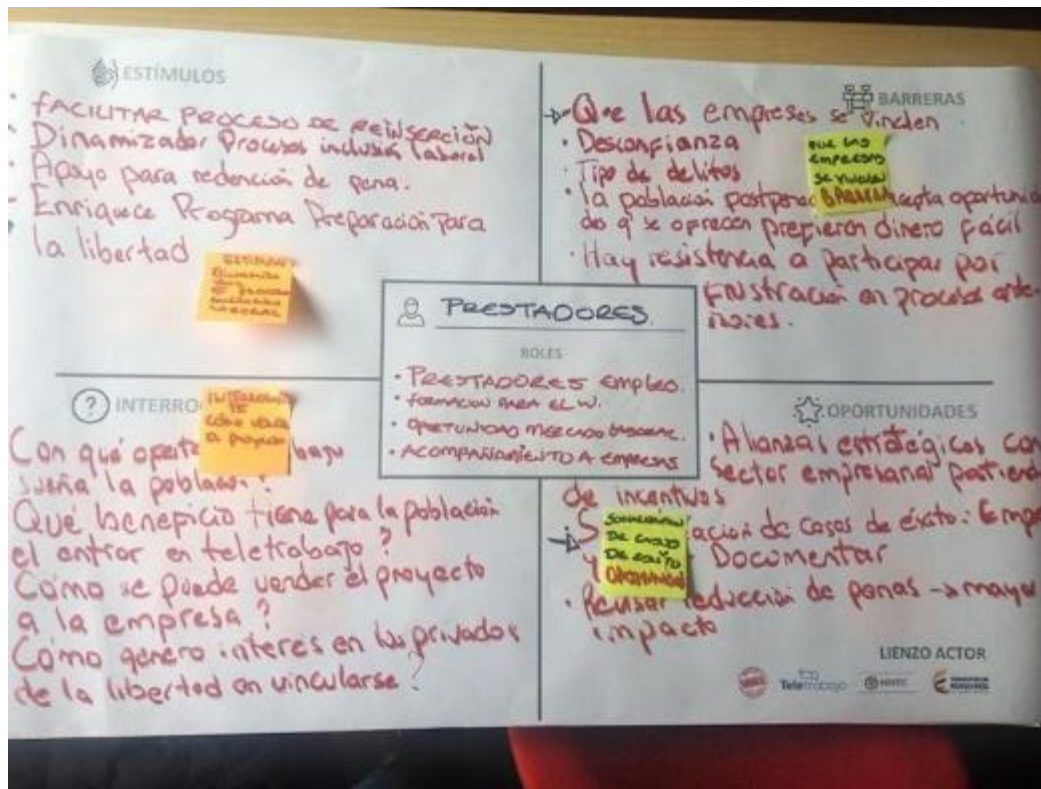 ESTÍMULOS
• FACILITAR PROCESO DE REINSERCIÓN
• Dinamizador Procesos inclusión laboral
• Apoyo para redención de pena.
• Enriquece Programa Preparación para
la libertad
BARRERAS
Que las empreses se vinclen
• Desconfianza
• Tipo de delitos
• la población acepta oportunida
des q' se ofrecen prefieren dinero fácil
• Hay resistencia a participar por
frustración en procesos ante-
riores.
QUE LAS
EMPRESAS
SE VINCULEN
BARRERA
PRESTADORES
ROLES
• PRESTADORES empleo.
• FORMACION PARA EL W.
• OPORTUNIDAD MERCADO LABORAL.
• ACOMPAÑAMIENTO A EMPRESAS
? INTERRO
INTERROGAN
TE
cómo vender
el proyecto
Con qué bajo
sueña la población?
Qué beneficio tiene para la población
el entrar en teletrabajo?
Cómo se puede vender el proyecto
a la empresa?
Cómo genero interés en los privados
de la libertad en vincularse?
OPORTUNIDADES
• Alianzas estratégicas con
sector empresarial partiendo
de incentivos
S ación de casos de éxito: Empe
y Documentar
• Revisar reducción de penas → mayor
impacto
SOCIALIZACION
DE CASOS
DE EXITO
OPORTUNIDAD
LIENZO ACTOR
Teletrabajo
MINTIC